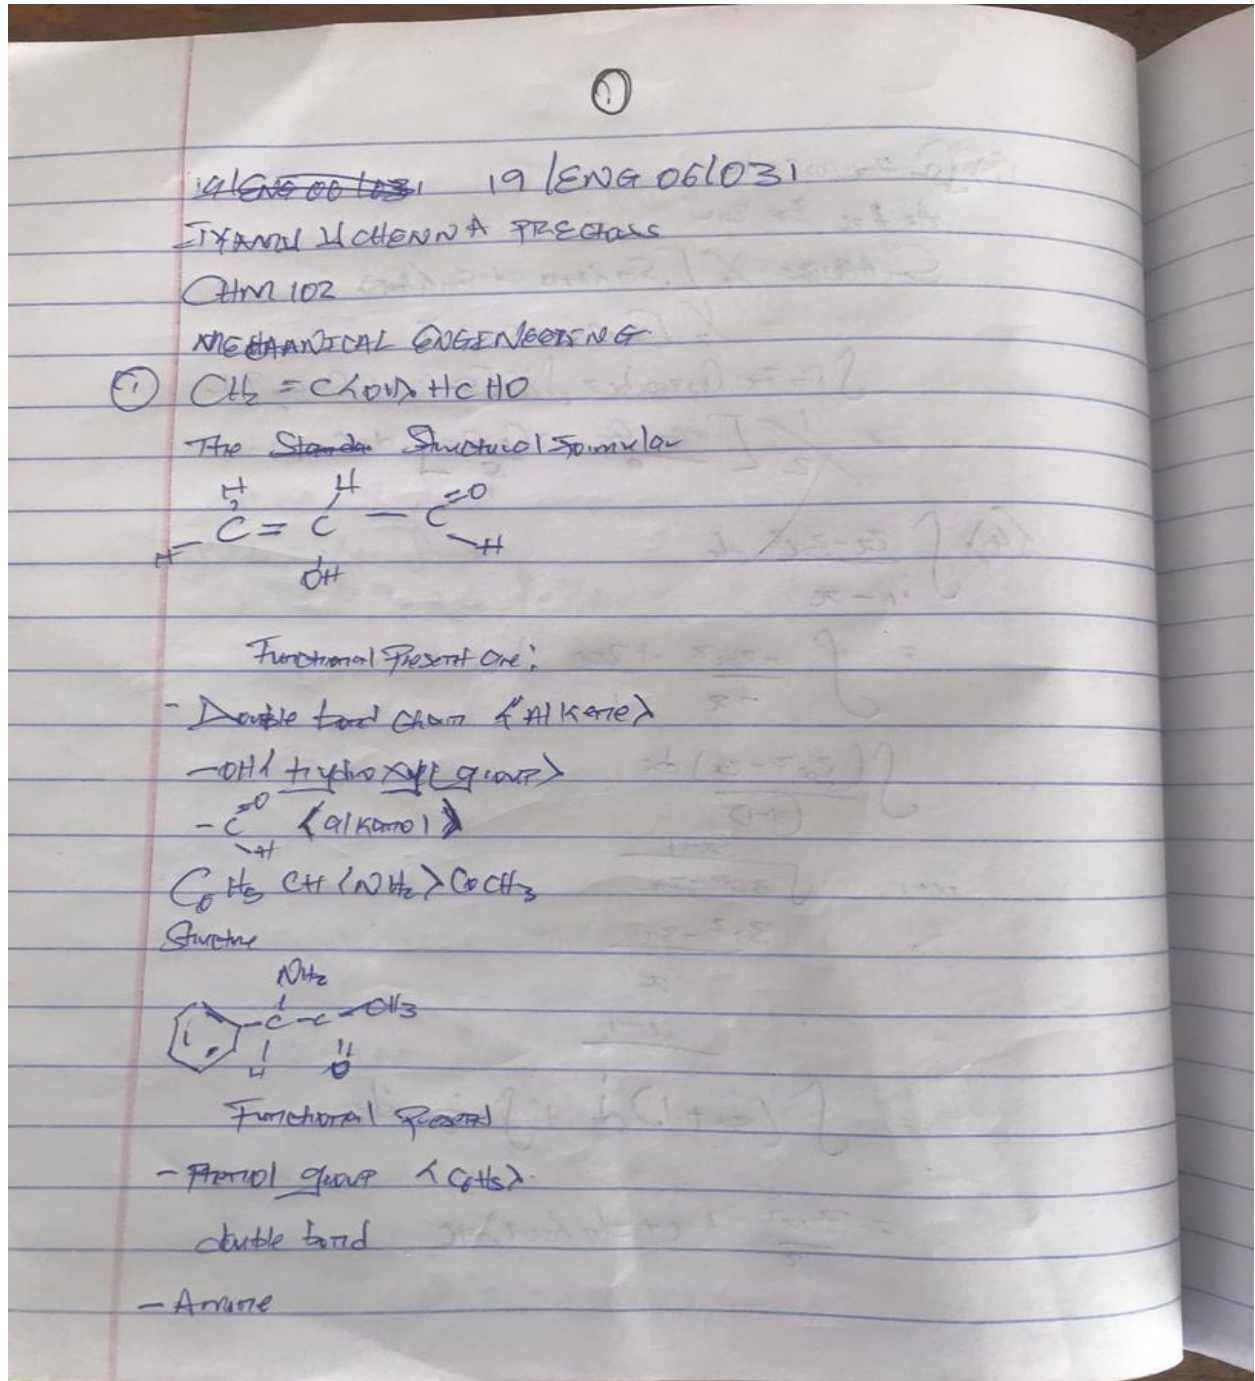 ①
19/ENG06/031 19/ENG06/031
UCHENNA PRECIOUS
CHM 102
MECHANICAL ENGINEERING
① CH₂ = C(OH)HCHO
The Standa Structural Formular
H H
C = C — C =O
H H
OH
Functional Present are:
- Double bond chain (Alkene)
-OH (hydroxyl group)
- C =O (alkanol)
H
C₆H₅ CH(NH₂)COCH₃
Structure
NH₂
C - C - CH₃
H O
Functional Present
- Phenol group (C₆H₅)
double bond
- Amine